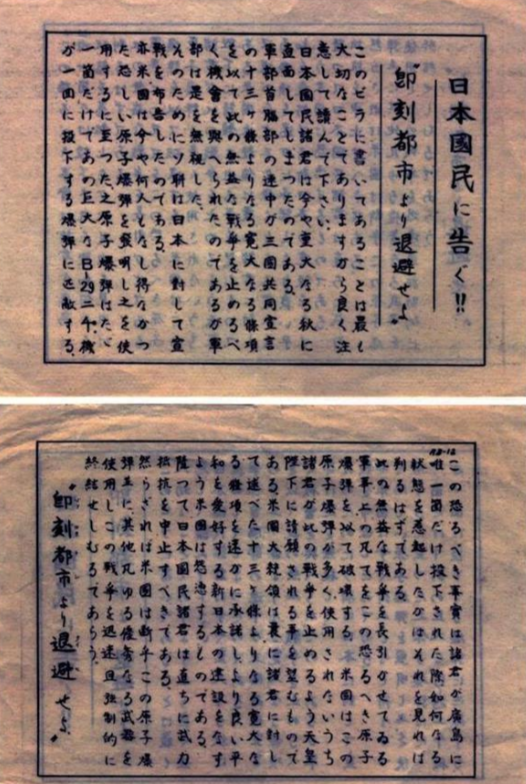 日本國民に告ぐ!!
"即刻都市より退避せよ"
このビラに書いてあることは最も
大切なことでありますから良く注
意して讀んで下さい。
日本國民諸君は今や重大なる秋に
直面してしまつたのである。
軍部首脳部の連中が三國共同宣言
の十三ヶ條よりなる寛大なる條項
を以て此の無益な戦争を止めるべ
く機會を與へられたのであるが軍
部は是を無視した。
そのためにソ聯は日本に対して宣
戦を布告したのである。
亦米國は今や何人もなし得なかつ
た恐しい原子爆弾を發明し之を使
用するに至つた。之原子爆弾はたゞ
一箇だけであの巨大なB-29二千機
が一回に投下する爆弾に匹敵する。
この恐るべき事實は諸君が廣島に
唯一箇だけ投下された際如何なる
状態を惹起したかはそれを見れば
判るはずである。
此の無益な戦争を長引かせてゐる
軍事上の凡てをこの恐るべき原子
爆弾を以て破壊する。米國はこの
原子爆弾が多く使用されないうち
諸君が此の戦争を止めるよう天皇
陛下に請願される事を望むもので
ある。米國大統領は曩に諸君に対し
て述べた十三ヶ條よりなる寛大な
る條項を速かに承諾し、より良い平
和を愛好する新日本の建設をなす
よう米國は慫慂するものである。
陸つて日本國民諸君は直ちに武力
抵抗を中止すべきである。
然らざれば米國は断乎この原子爆
弾並に其他凡ゆる優秀なる武器を
使用しこの戦争を迅速且強制的に
終結せしむるであらう。
"即刻都市より退避せよ"